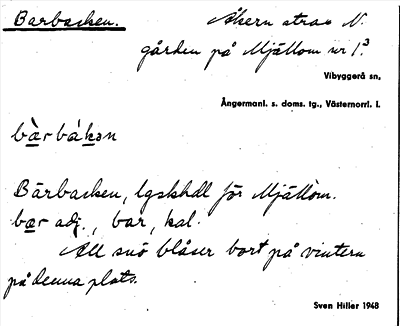 Barbacken. Åkern strax N.
gården på Mjällom nr 1³
Vibyggerå sn,
Ångermanl. s. doms. tg., Västernorrl. l.
bàrbákən
Barbacken, lgskhdl för Mjällom.
bar adj., bar, kal.
All snö blåser bort på vintern
på denna plats.
Sven Hiller 1948